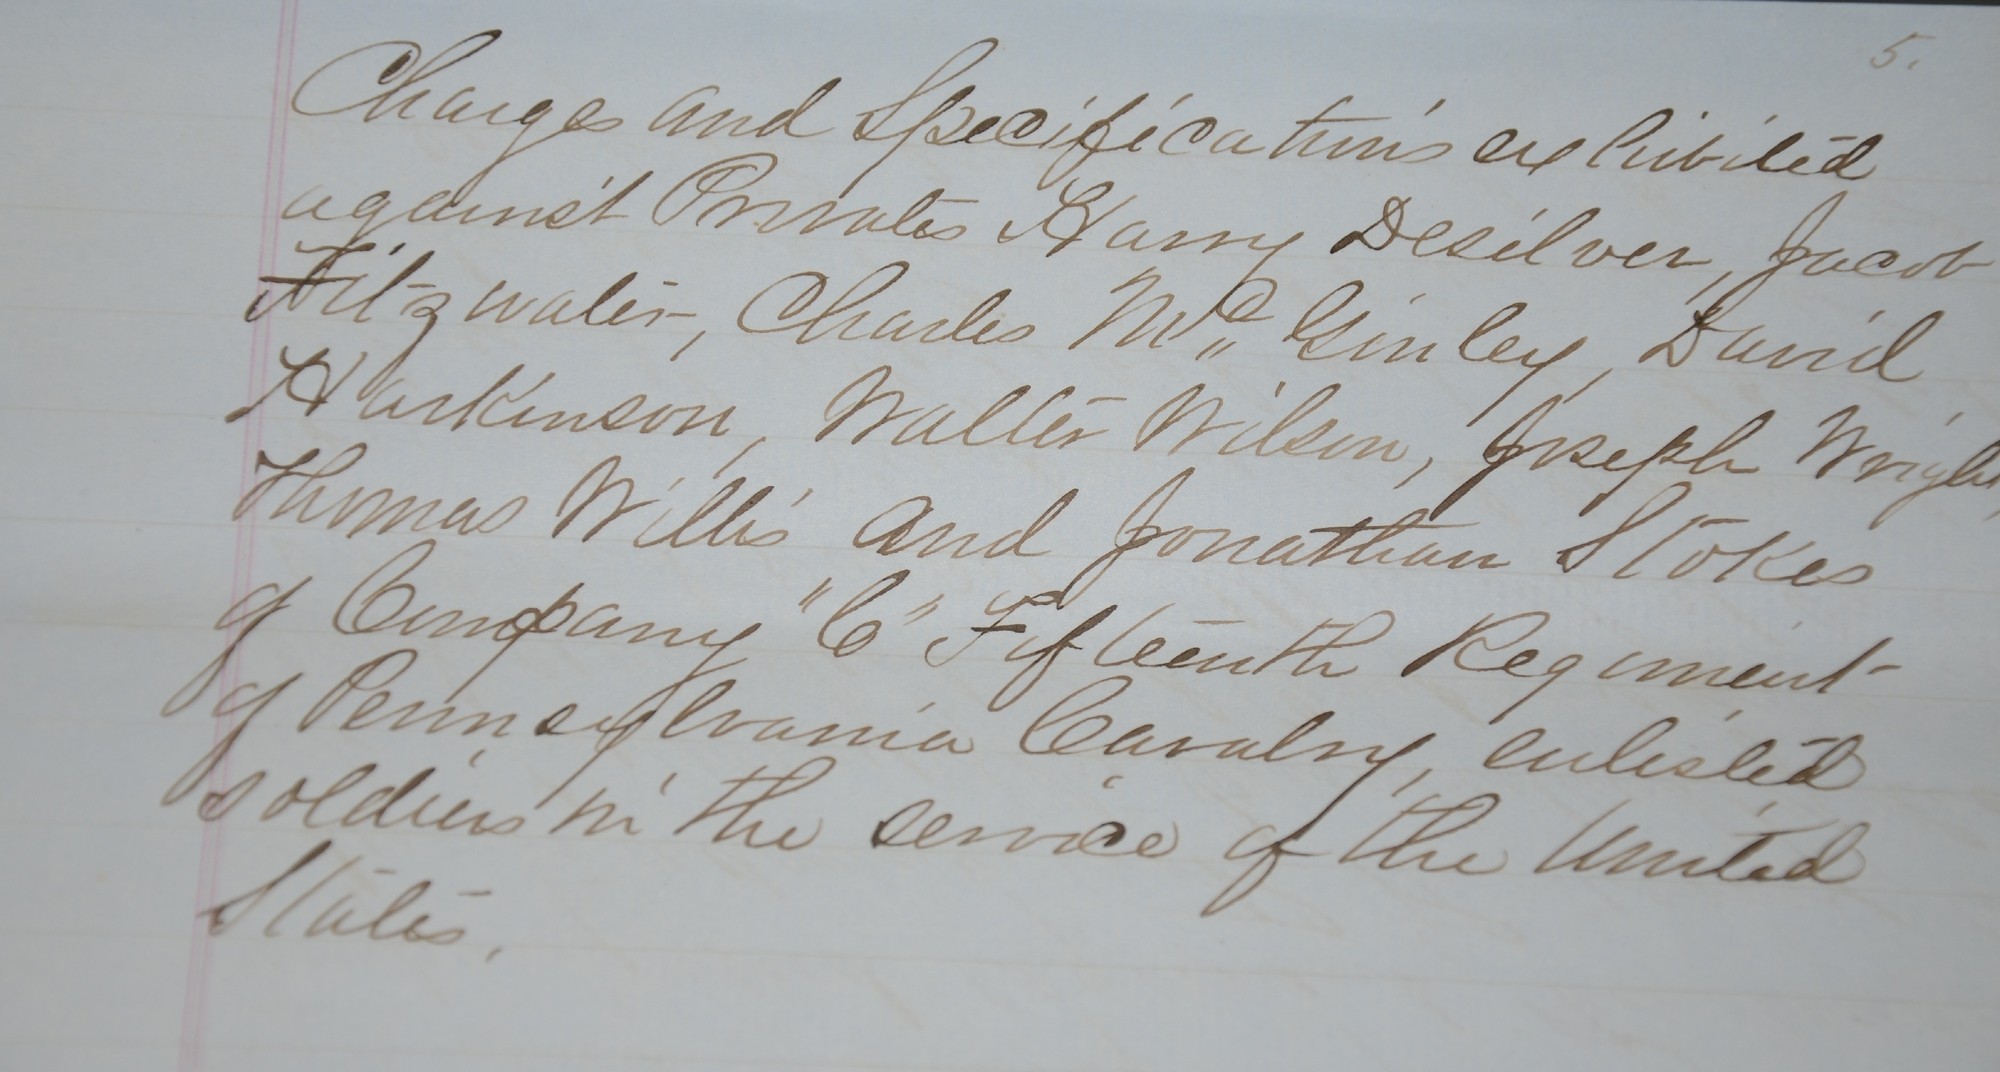 5.
Charges and Specifications exhibited
against Privates Harry Desilver, Jacob
Fitzwater, Charles McGinley, David
Harkinson, Walter Wilson, Joseph Wright,
Thomas Willis and Jonathan Stokes
of Company "C" Fifteenth Regiment
of Pennsylvania Cavalry, enlisted
soldiers in the service of the United
States.